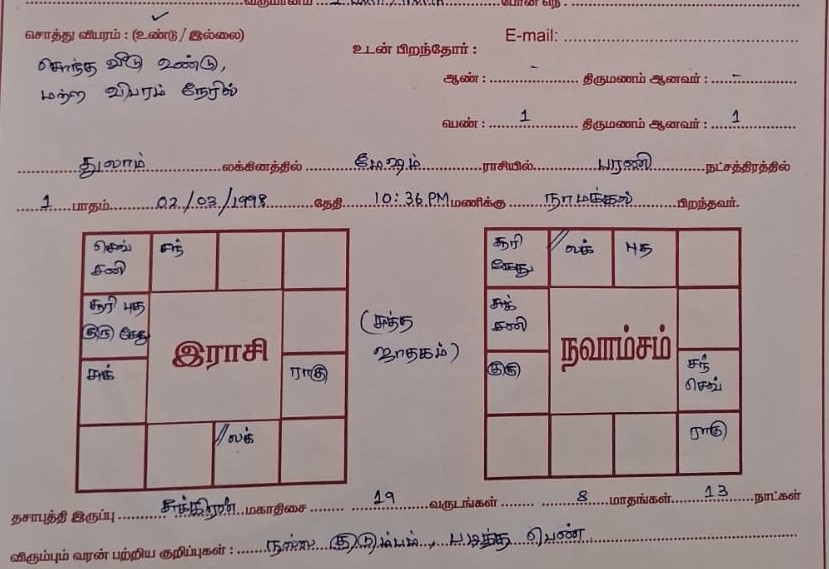 வருமானம்
போன் நெ :
சொத்து விபரம் : (உண்டு / இல்லை)
E-mail:
உடன் பிறந்தோர் :
சொந்த வீடு உண்டு,
மற்ற விபரம் நேரில்
ஆண் : - திருமணம் ஆனவர் : -
பெண் : 1 திருமணம் ஆனவர் : 1
துலாம் லக்கினத்தில் மேஷம் ராசியில் பரணி நட்சத்திரத்தில்
1 பாதம் 02/03/1998 தேதி 10:36 PM மணிக்கு நாமக்கல் பிறந்தவர்.
செவ் சந்
சனி
சூரி புத
குரு கேது
இராசி
சுக் ராகு
லக்
(சுத்த
ஜாதகம்)
சூரி லக் புத
கேது
சுக்
சனி
நவாம்சம்
குரு சந்
செவ்
ராகு
தசாபுத்தி இருப்பு சுக்கிரன் மகாதிசை 19 வருடங்கள் 8 மாதங்கள் 13 நாட்கள்
விரும்பும் வரன் பற்றிய குறிப்புகள் : நல்ல குடும்பம், படித்த பெண்